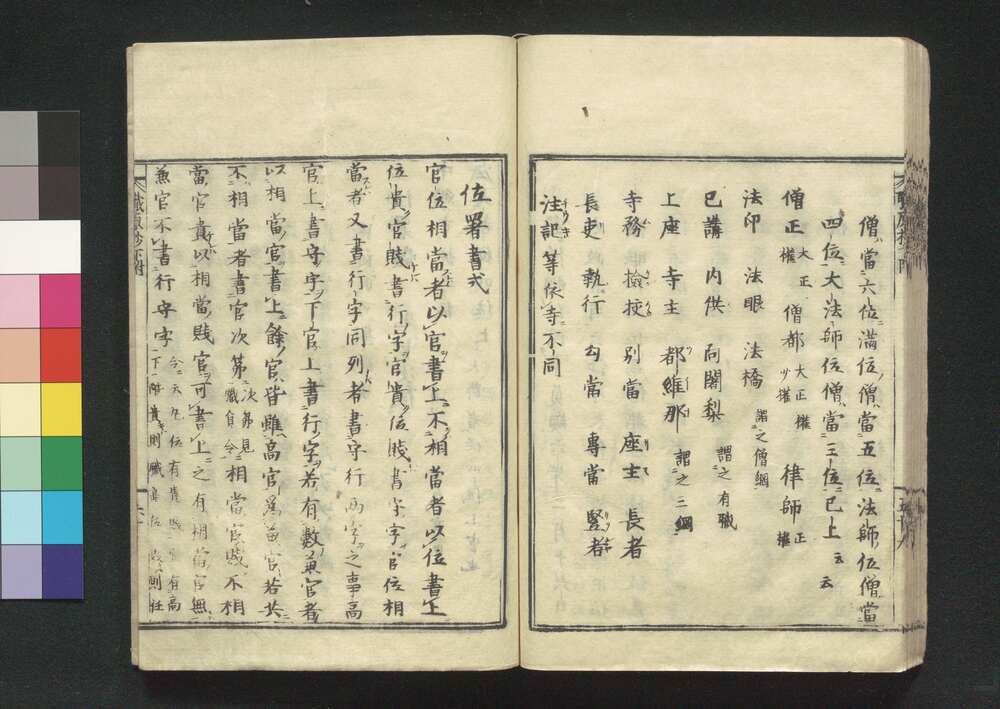 僧當六位滿位僧當五位法師位僧當
四位大法師位僧當三位已上云云
僧正 大正權 僧都 大正權少權 律師 正權
法印 法眼 法橋 謂之僧綱
已講 内供 阿闍梨 謂之有職
上座 寺主 都維那 謂之三綱
寺務 檢挍 別當 座主 長者
長吏 執行 勾當 專當 竪者
注記等依寺不同
位署書式
官位相當者以官書上不相當者以位書上
位貴官賤書行字官貴位賤書守字官位相
當者又書行字同列者書守行兩字之事高
官上書守字下官上書行字若有數兼官者
以相當官書上餘官皆雖高官為兼官若共
不相當者書官次第 次第見職員令 相當官賤不相
當官貴以相當賤官可書上之有相當官無
兼官不書行守字